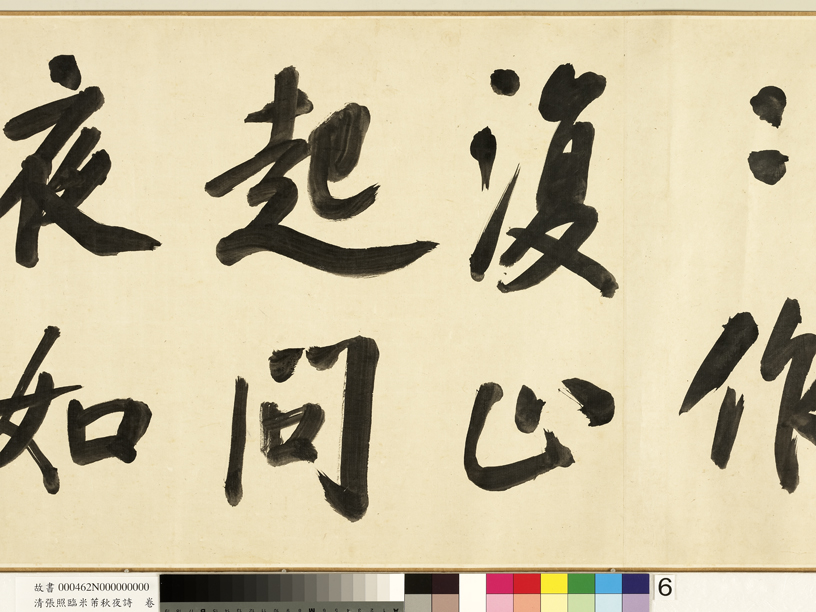 ：作
復止
起問
夜如
故書 000462N000000000
清張照臨米芾秋夜詩 卷
6